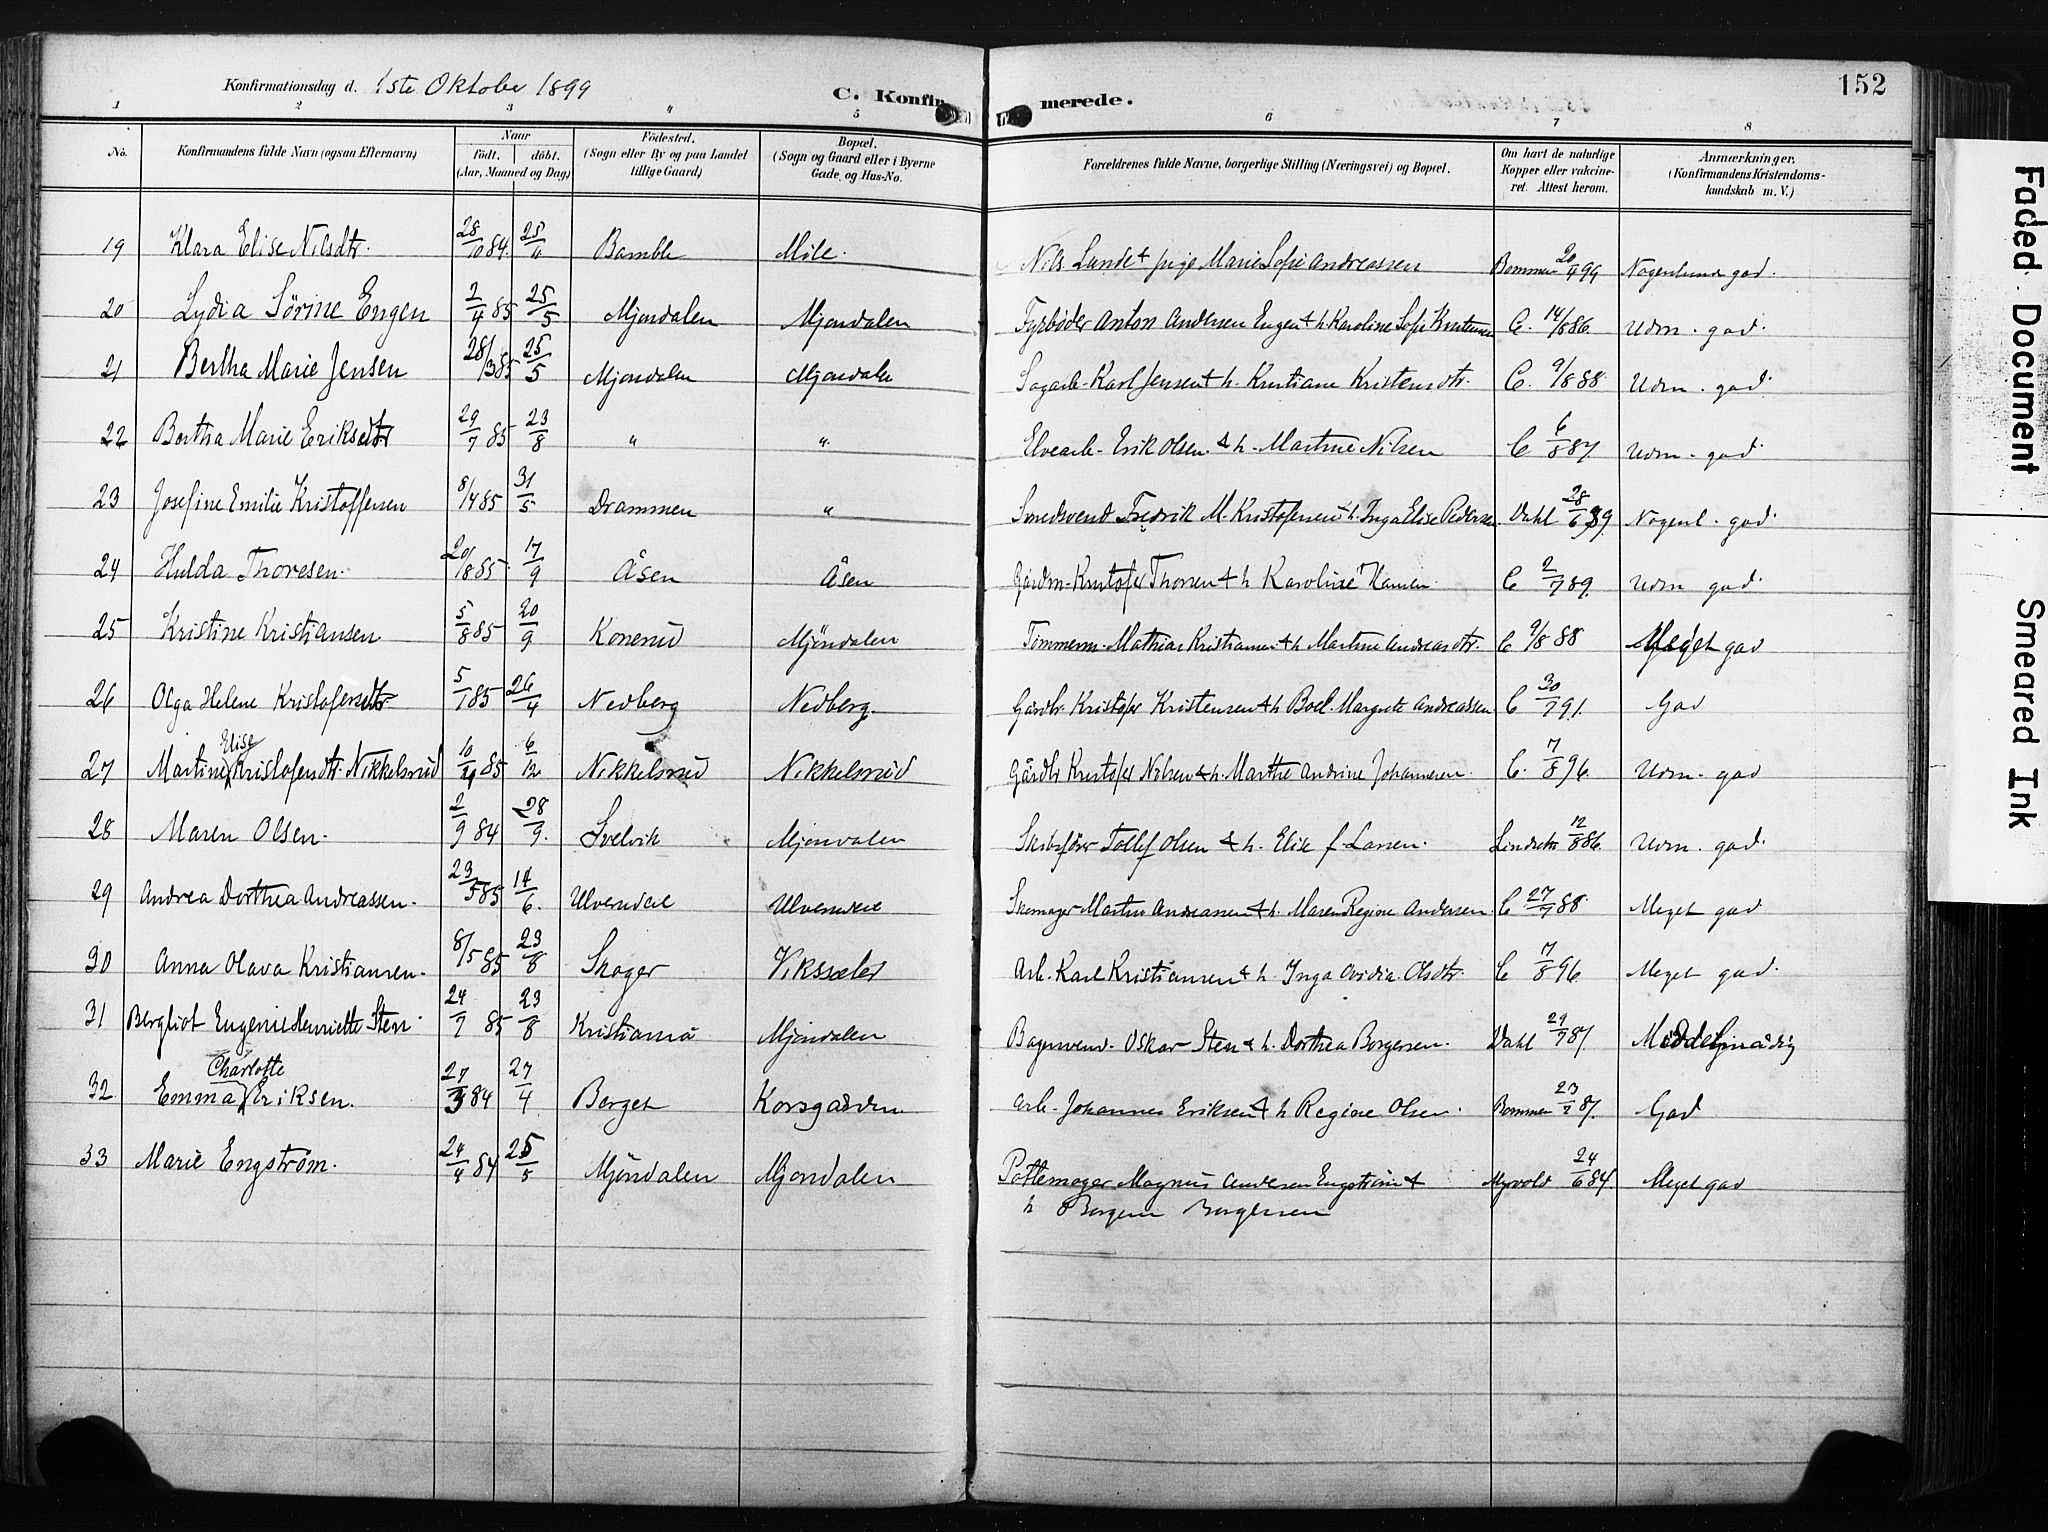 Konfirmationsdag d. 1ste Oktober 1899
C. Konfirmerede.
152
1 2 3 " 5 6 7 8
No.
Konfirmandens fulde Navn (ogsaa Efternavn)
Naar
födt. döbt.
(Aar, Maaned og Dag)
Födested.
(Sogn eller By og paa Landet
tillige Gaard)
Bopæl.
(Sogn og Gaard eller i Byerne
Gade og Hus-No.
Forældrenes fulde Navne, borgerlige Stilling (Næringsvei) og Bopæl.
Om havt de naturlige
Kopper eller vakcine-
ret. Attest herom.
Anmærkninger.
(Konfirmandens Kristendoms-
kundskab m. V.)
19 Klara Elise Nilsdtr. 28/10 84. Bamble Mile. Nils Lunde & pige Marie Sofie Andreassen 20/9 99 god.
20 Lydia Sörine Engen 2/4 85 25/5 Mjöndalen Mjöndalen Fyrböder Anton Andersen Engen & h. Karoline Sofie C. 14/8 86. Udm. god.
21 Bertha Marie Jensen 28/3 85 25/5 Mjöndalen Mjöndalen Sagarb. Karl Jensen & h. Kristiane Kristensdtr. C. 9/8 88. Udm. god.
22 Bertha Marie Eriksdtr 29/7 85 23/8 " " Elvearb. Erik Olsen & h. Martine Nilsen C 6/8 87. Udm. god.
23 Josefine Emilie Kristoffersen 8/4 85 31/5 Drammen " Smedsvend Fredrik M. Kristofersen & h. Inga Elise Pedersen Dahl 28/6 89. Nogenl. god.
24 Hulda Thoresen. 20/8 85 17/9 Åsen Åsen Gårdm. Kristofer Thorsen & h Karoline Hansen. C 2/7 89. Udm god.
25 Kristine Kristiansen 5/8 85 20/9 Konerud Mjöndalen Tömmerm. Mathias Kristiansen & h Martine Andreasdtr. C 9/8 88 Meget god
26 Olga Helene Kristofersdtr 5/1 85 26/4 Nedberg Nedberg. Gårdbr. Kristofer Kristensen & h Boel Margrete Andreassen C 30/7 91. God
27 Martine Elise Kristofersdtr. Nikkelsrud 85 6/12 Nikkelsrud Nikkelsrud Gårdbr Kristofer Nilsen & h. Marthe Andrine Johannesen C. 7/8 96. Udm. god
28 Maren Olsen. 2/9 84 28/9. Svelvik Mjöndalen Skibsförer Tollef Olsen & h. Elise f. Larsen. 12/8 86. Udm. god.
29 Andrea Dorthea Andreassen. 23/5 85 14/6. Skomager Martin Andreassen & h. Maren Regine Andersen. C 27/7 88. Meget god
30 Anna Olava Kristiansen. 8/5 85 23/8 Skoger Vikssæter Arb. Karl Kristiansen & h. Inga Ovidia Olsdtr. C 7/8 96. Meget god.
31 Bergliot Eugenie Henriette Sten. 24/7 85 23/8 Kristiania Mjöndalen Bagersvend. Oskar Sten & h. Dorthea Borgersen. Dahl 29/7 87. Middelmådig
32 Emma Charlotte Eriksen. 27/3 84 27/4 Berget Korsgården Arb. Johannes Eriksen & h Regine Olsen. 23/7 87. God
33 Marie Engström. 24/4 84 25/5 Mjöndalen Mjöndalen Pottemager Magnus Andersen Engström & Myrvold 24/6 84. Meget god
h Borgersen
Faded Document Smeared Ink